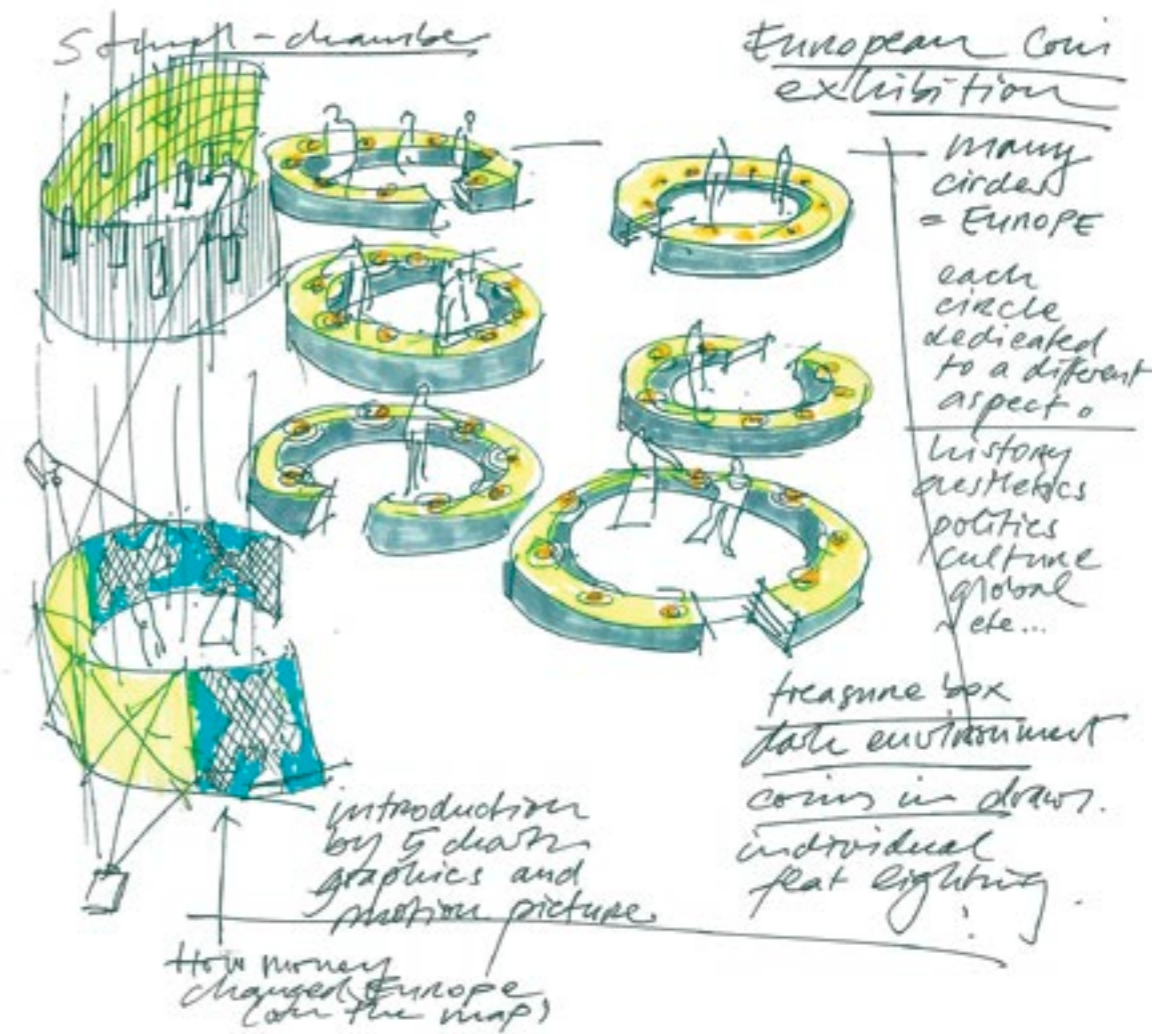 -chamber
European Coin
exhibition
many
circles
= EUROPE
each
circle
dedicated
to a different
aspect.
history
aesthetics
politics
culture
global
etc...
treasure box
environment
coins in
individual
flat lighting
!
introduction
by 5
graphics and
motion picture.
How money
changed Europe
(on the map)